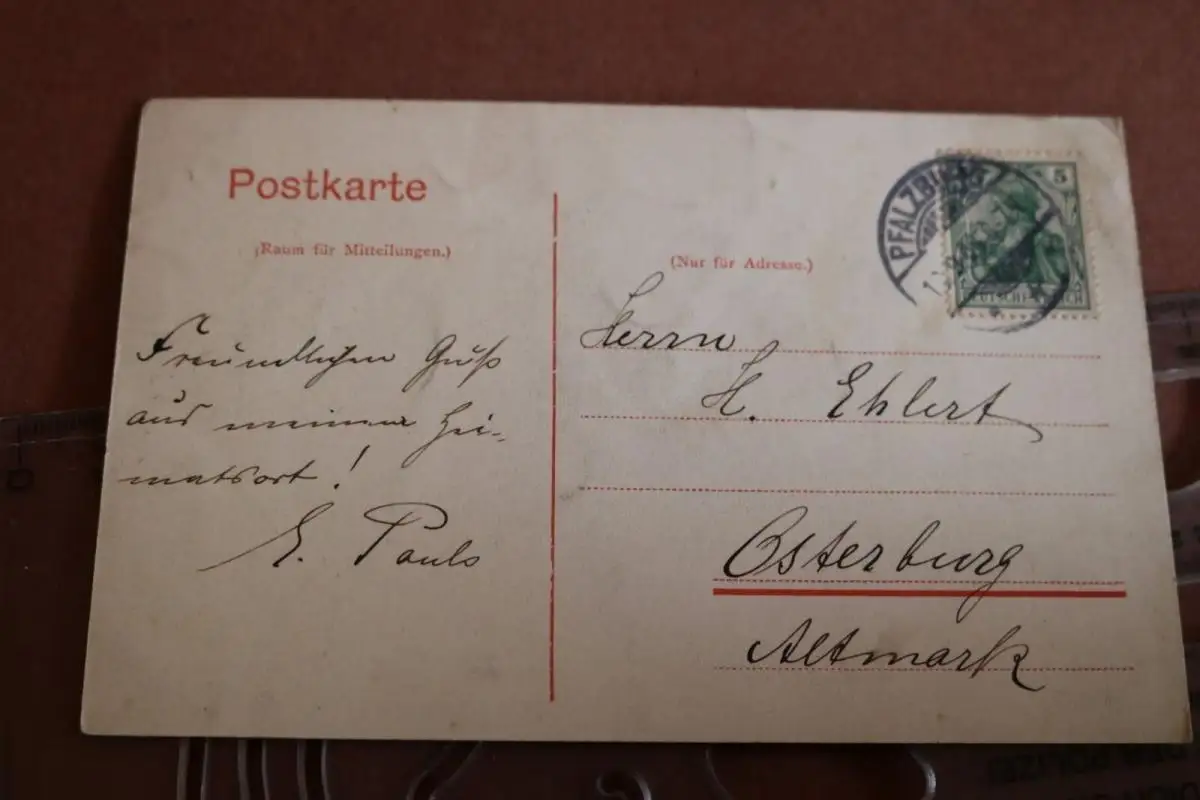 Postkarte
(Raum für Mitteilungen.)
Freundlichen Gruß
aus meinem Hei-
matsort!
E. Pauls
(Nur für Adresse.)
PFALZBURG
5
DEUTSCHES REICH
Herrn
H. Ehlert
Osterburg
Altmark